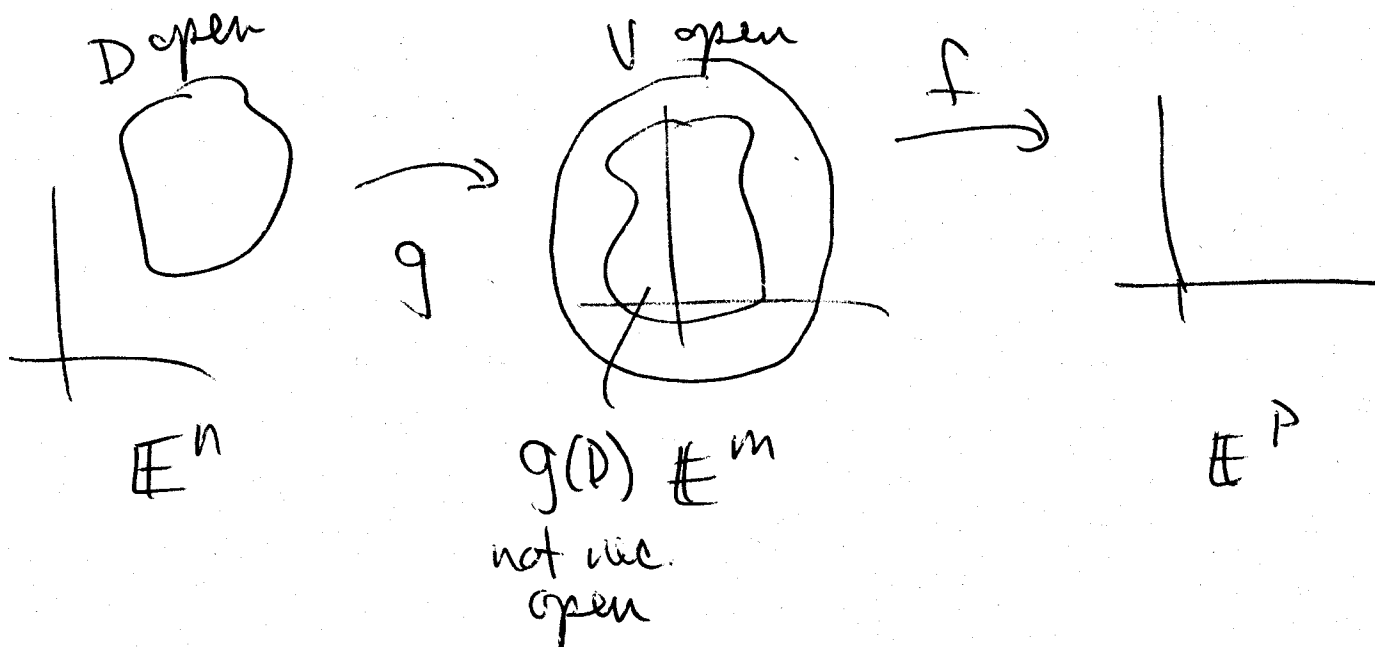 D open
V open
f
g
𝔼ⁿ
g(D) 𝔼ᵐ
𝔼ᵖ
not nec.
open